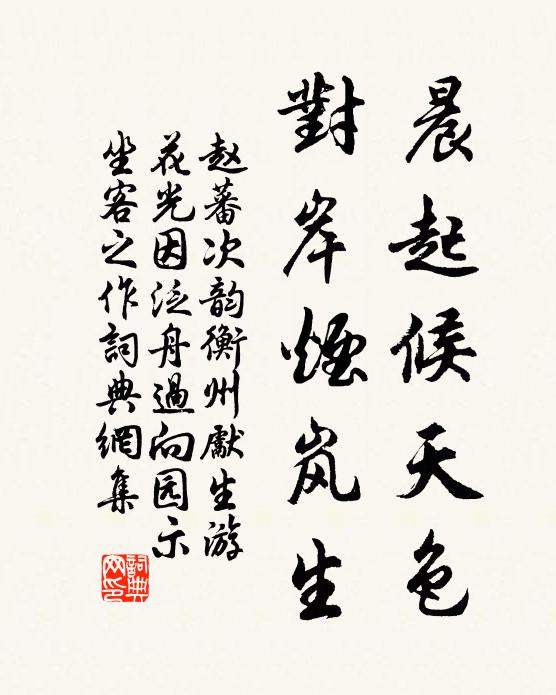 晨起候天色
對岸煙岚生
赵蕃次韵衡州獻生游
花光因泛舟過向园示
坐客之作詞典網集
詞典网印